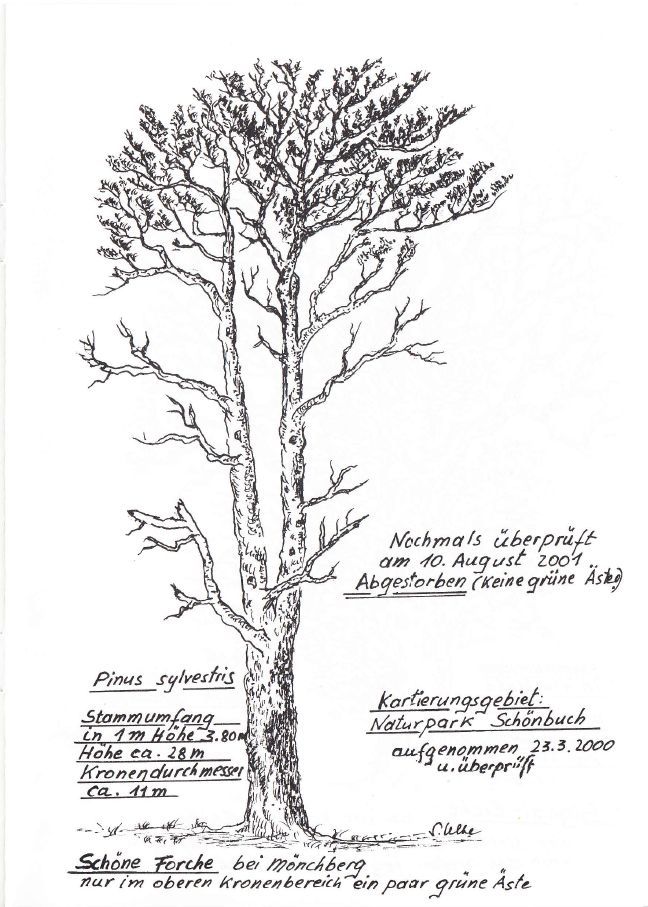 Nochmals überprüft
am 10. August 2001
Abgestorben (keine grüne Äste)
Pinus sylvestris
Stammumfang
in 1 m Höhe 3.80m
Höhe ca. 28 m
Kronendurchmesser
ca. 11 m
Kartierungsgebiet:
Naturpark Schönbuch
aufgenommen 23.3.2000
u. überprüft
Schöne Forche bei Mönchberg
nur im oberen Kronenbereich ein paar grüne Äste